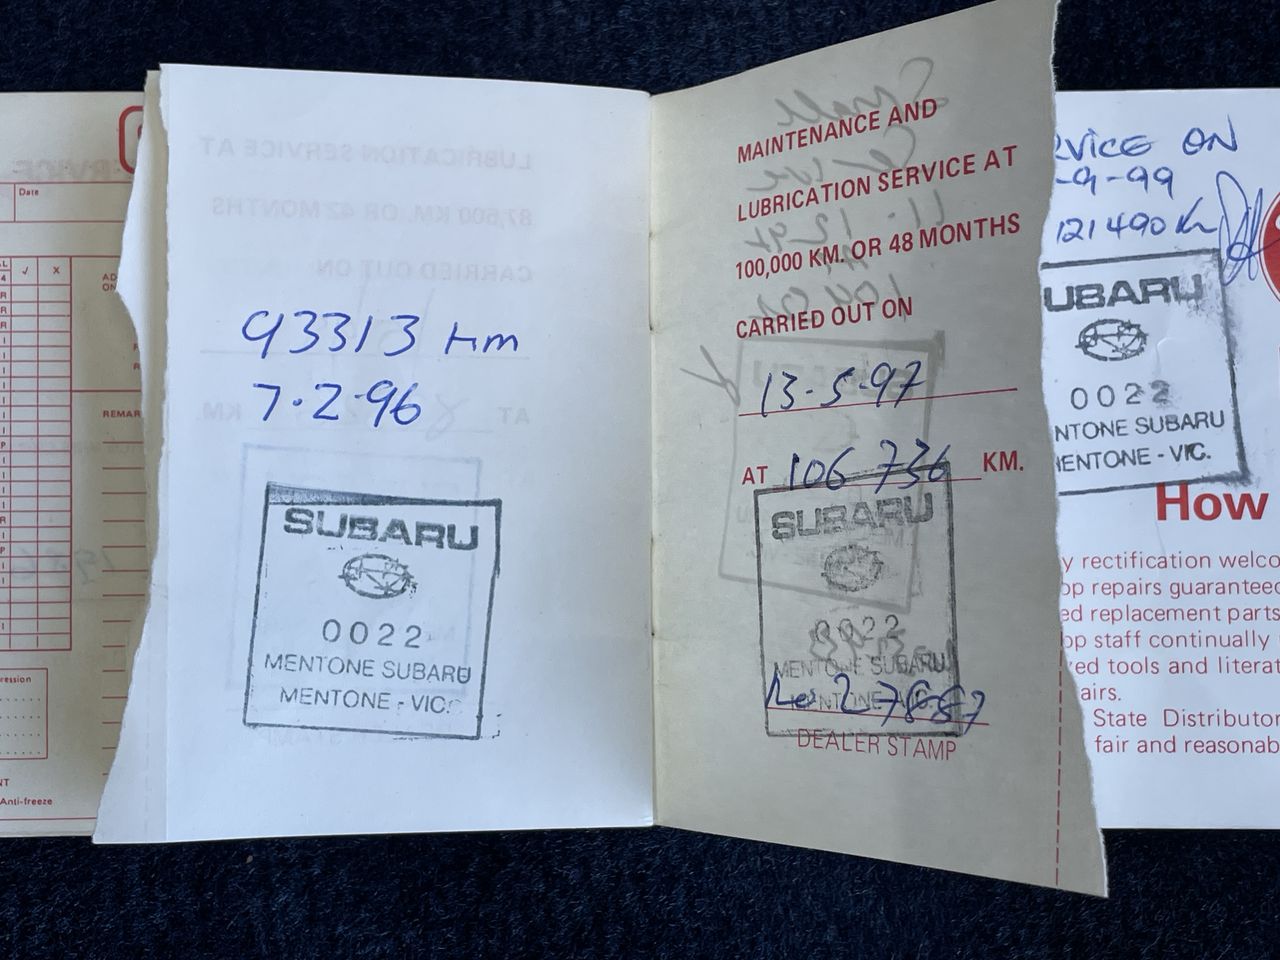 Date
REMAR
Anti-freeze
LUBRICATION SERVICE AT
87,500 KM. OR 42 MONTHS
CARRIED OUT ON
AT
KM.
93313 Km
7.2.96
SUBARU
0022
MENTONE SUBARU
MENTONE - VIC.
MAINTENANCE AND
LUBRICATION SERVICE AT
100,000 KM. OR 48 MONTHS
CARRIED OUT ON
13-5-97
AT 106 736 KM.
SUBARU
0022
MENTONE SUBARU
27887
DEALER STAMP
RVICE ON
-9-99
121490 Km
UBARU
0022
NTONE SUBARU
MENTONE - VIC.
How
y rectification welco
op repairs guaranteed
ed replacement parts
op staff continually
ed tools and literat
airs.
State Distributor
fair and reasonab